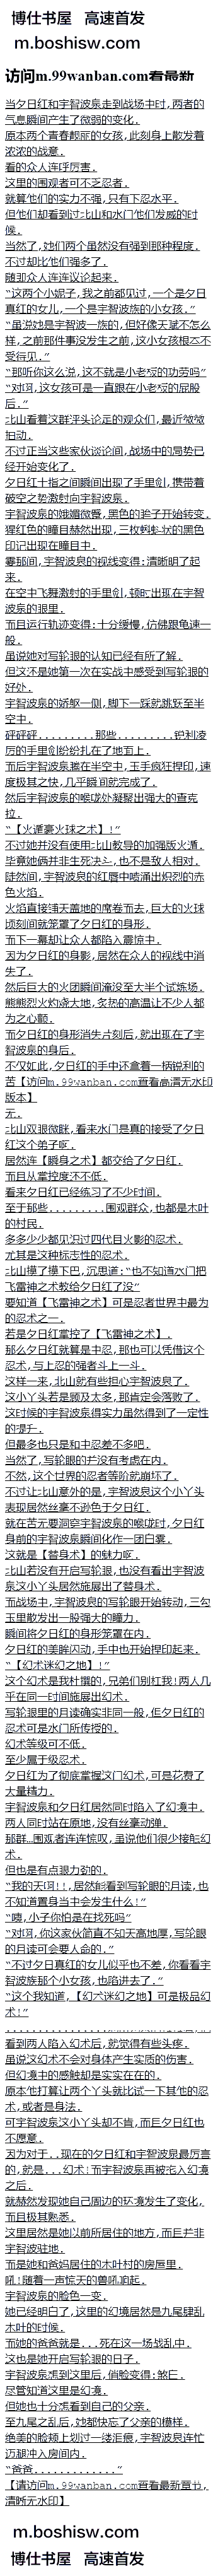 博仕书屋 高速首发
m.boshisw.com
访问m.99wanban.com看最新
当夕日红和宇智波泉走到战场中时,两者的
气息瞬间产生了微弱的变化.
原本两个青春靓丽的女孩,此刻身上散发着
浓浓的战意.
看的众人连呼厉害.
这里的围观者可不乏忍者.
就算他们的实力不强,只有下忍水平.
但他们却看到过北山和水门他们发威的时
候.
当然了,她们两个虽然没有强到那种程度.
不过却比他们强多了.
随即众人连连议论起来.
“这两个小妮子,我之前都见过,一个是夕日
真红的女儿,一个是宇智波族的小女孩.”
“虽说她是宇智波一族的,但好像天赋不怎么
样,之前那件事没发生之前,这小女孩根本不
受待见.”
“那听你这么说,这不就是小老板的功劳吗”
“对呀,这女孩可是一直跟在小老板的屁股
后.”
北山看着这群评头论足的观众们,最近微微
抽动.
不过正当这些家伙谈论间,战场中的局势已
经开始变化了.
夕日红十指之间瞬间出现了手里剑,携带着
破空之势激射向宇智波泉.
宇智波泉的娥眉微蹙,黑色的眸子开始转变.
猩红色的瞳目赫然出现,三枚蝌蚪状的黑色
印记出现在瞳目中.
霎那间,宇智波泉的视线变得:清晰明了起
来.
在空中飞舞激射的手里剑,顿时出现在宇智
波泉的眼里.
而且运行轨迹变得:十分缓慢,仿佛跟龟速一
般.
虽说她对写轮眼的认知已经有所了解.
但这还是她第一次在实战中感受到写轮眼的
好处.
宇智波泉的娇躯一侧,脚下一踩就跳跃至半
空中.
砰砰砰.........那些.........锐利凌
厉的手里剑纷纷扎在了地面上.
而后宇智波泉腾在半空中,玉手疯狂捏印,速
度极其之快,几乎瞬间就完成了.
然后宇智波泉的喉咙处凝聚出强大的查克
拉.
“【火遁豪火球之术】!”
不过她并没有使用北山教导的加强版火遁.
毕竟她俩并非生死决斗,也不是敌人相对.
陡然间,宇智波泉的红唇中喷涌出炽烈的赤
色火焰.
火焰直接铺天盖地的席卷而去,巨大的火球
顷刻间就笼罩了夕日红的身形.
而下一幕却让众人都陷入震惊中.
因为夕日红的身影,居然在众人的视线中消
失了.
然后巨大的火团瞬间淹没至大半个试炼场.
熊熊烈火灼烧大地,炙热的高温让不少人都
为之心颤.
而夕日红的身形消失片刻后,就出现在了宇
智波泉的身后.
不仅如此,夕日红的手中还拿着一柄锐利的
苦【访问m.99wanban.com查看高清无水印
版本】
无.
北山双眼微眯,看来水门是真的接受了夕日
红这个弟子啊.
居然连【瞬身之术】都交给了夕日红.
而且从掌控度还不低.
看来夕日红已经练习了不少时间.
至于那些.........围观群众,也都是木叶
的村民.
多多少少都见识过四代目火影的忍术.
尤其是这种标志性的忍术.
北山摸了摸下巴,沉思道:“也不知道水门把
飞雷神之术教给夕日红了没”
要知道【飞雷神之术】可是忍者世界中最为
的忍术之一.
若是夕日红掌控了【飞雷神之术】.
那么夕日红就算是中忍,那也可以凭借这个
忍术,与上忍的强者斗上一斗.
这样一来,北山就有些担心宇智波泉了.
这小丫头若是顾及太多,那肯定会落败了.
这时候的宇智波泉得实力虽然得到了一定性
的提升.
但最多也只是和中忍差不多吧.
当然了,写轮眼的并没有考虑在内.
不然,这个世界的忍者等阶就崩坏了.
不过让北山意外的是,宇智波泉这个小丫头
表现居然丝毫不逊色于夕日红.
就在苦无要洞穿宇智波泉的喉咙时,夕日红
身前的宇智波泉瞬间化作一团白雾.
这就是【替身术】的魅力啊.
北山若没有开启写轮眼,也没有看出宇智波
泉这小丫头居然施展出了替身术.
而战场中,宇智波泉的写轮眼开始转动,三勾
玉里散发出一股强大的瞳力.
瞬间将夕日红的身形笼罩在内.
夕日红的美眸闪动,手中也开始捏印起来.
“【幻术迷幻之地】!”
这个幻术是我杜撰的,兄弟们别杠我!两人几
乎在同一时间施展出幻术.
写轮眼里的月读确实非同一般,但夕日红的
忍术可是水门所传授的.
幻术等级可不低.
至少属于级忍术.
夕日红为了彻底掌握这门幻术,可是花费了
大量精力.
宇智波泉和夕日红居然同时陷入了幻境中.
两人同时站在原地,没有丝毫动弹.
那群...围观者连连惊叹,虽说他们很少接触幻
术.
但也是有点眼力劲的.
“我的天呐!!,居然能看到写轮眼的月读,也
不知道置身当中会发生什么!”
“咦,小子你怕是在找死吗”
“对呀,你这家伙简直不知天高地厚,写轮眼
的月读可会要人命的.”
“不过夕日真红的女儿似乎也不差,你看看宇
智波族那个小女孩,也陷进去了.”
“这个我知道,【幻术迷幻之地】可是极品幻
术!”
看到两人陷入幻术后,就觉得有些头疼.
虽说这幻术不会对身体产生实质的伤害.
但幻境中的感触却是实实在在的.
原本他打算让两个丫头就比试一下其他的忍
术,或者是身法.
可宇智波泉这小丫头却不肯,而且夕日红也
不愿意.
因为对于..现在的夕日红和宇智波泉最厉害
的,就是...幻术!而宇智波泉再被拖入幻境
之后.
就赫然发现她自己周边的环境发生了变化,
而且极其熟悉.
这里居然是她以前所居住的地方,而且并非
宇智波驻地.
而是她和爸妈居住的木叶村的房屋里.
吼!随着一声惊天的兽吼响起.
宇智波泉的脸色一变.
她已经明白了,这里的幻境居然是九尾肆乱
木叶的时候.
而她的爸爸就是...死在这一场战乱中.
这也是她开启写轮眼的日子.
宇智波泉想到这里后,俏脸变得:煞白.
尽管知道这里是幻境.
但她也十分想看到自己的父亲.
至九尾之乱后,她都快忘了父亲的模样.
绝美的脸颊上划过一缕泪痕,宇智波泉连忙
迈腿冲入房间内.
“爸爸.............”
【请访问m.99wanban.com查看最新章节,
清晰无水印】
m.boshisw.com
博仕书屋 高速首发